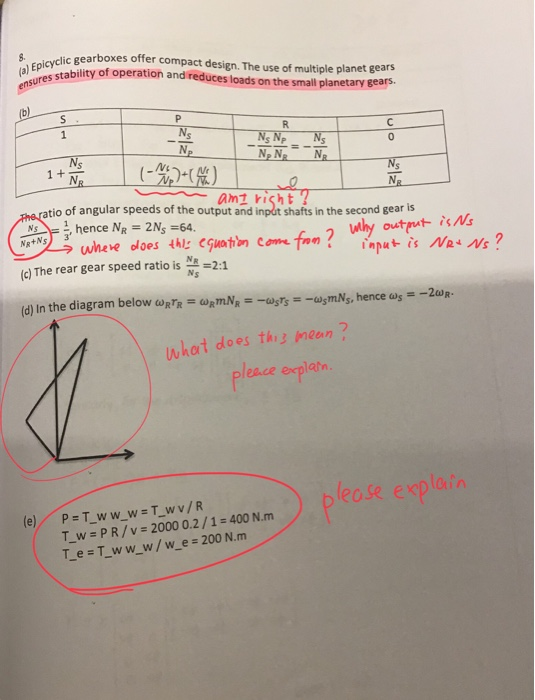 8.
(a) Epicyclic gearboxes offer compact design. The use of multiple planet gears
ensures stability of operation and reduces loads on the small planetary gears.
(b)
S P R C
1 -N_S/N_P -N_S N_P/N_P N_R = -N_S/N_R 0
1 + N_S/N_R (-N_S/N_P)+(N_S/N_R) 0 N_S/N_R
am I right?
The ratio of angular speeds of the output and input shafts in the second gear is
N_S/N_R+N_S = 1/3, hence N_R = 2N_S =64.
→ where does this equation come from? why output is N_S
input is N_R+N_S?
(c) The rear gear speed ratio is N_R/N_S =2:1
(d) In the diagram below ω_R r_R = ω_R mN_R = −ω_S r_S = −ω_S mN_S, hence ω_S = −2ω_R.
what does this mean?
pleace explain.
(e) P = T_w w_w = T_w v / R
T_w = P R / v = 2000 0.2 / 1 = 400 N.m
T_e = T_w w_w / w_e = 200 N.m
please explain